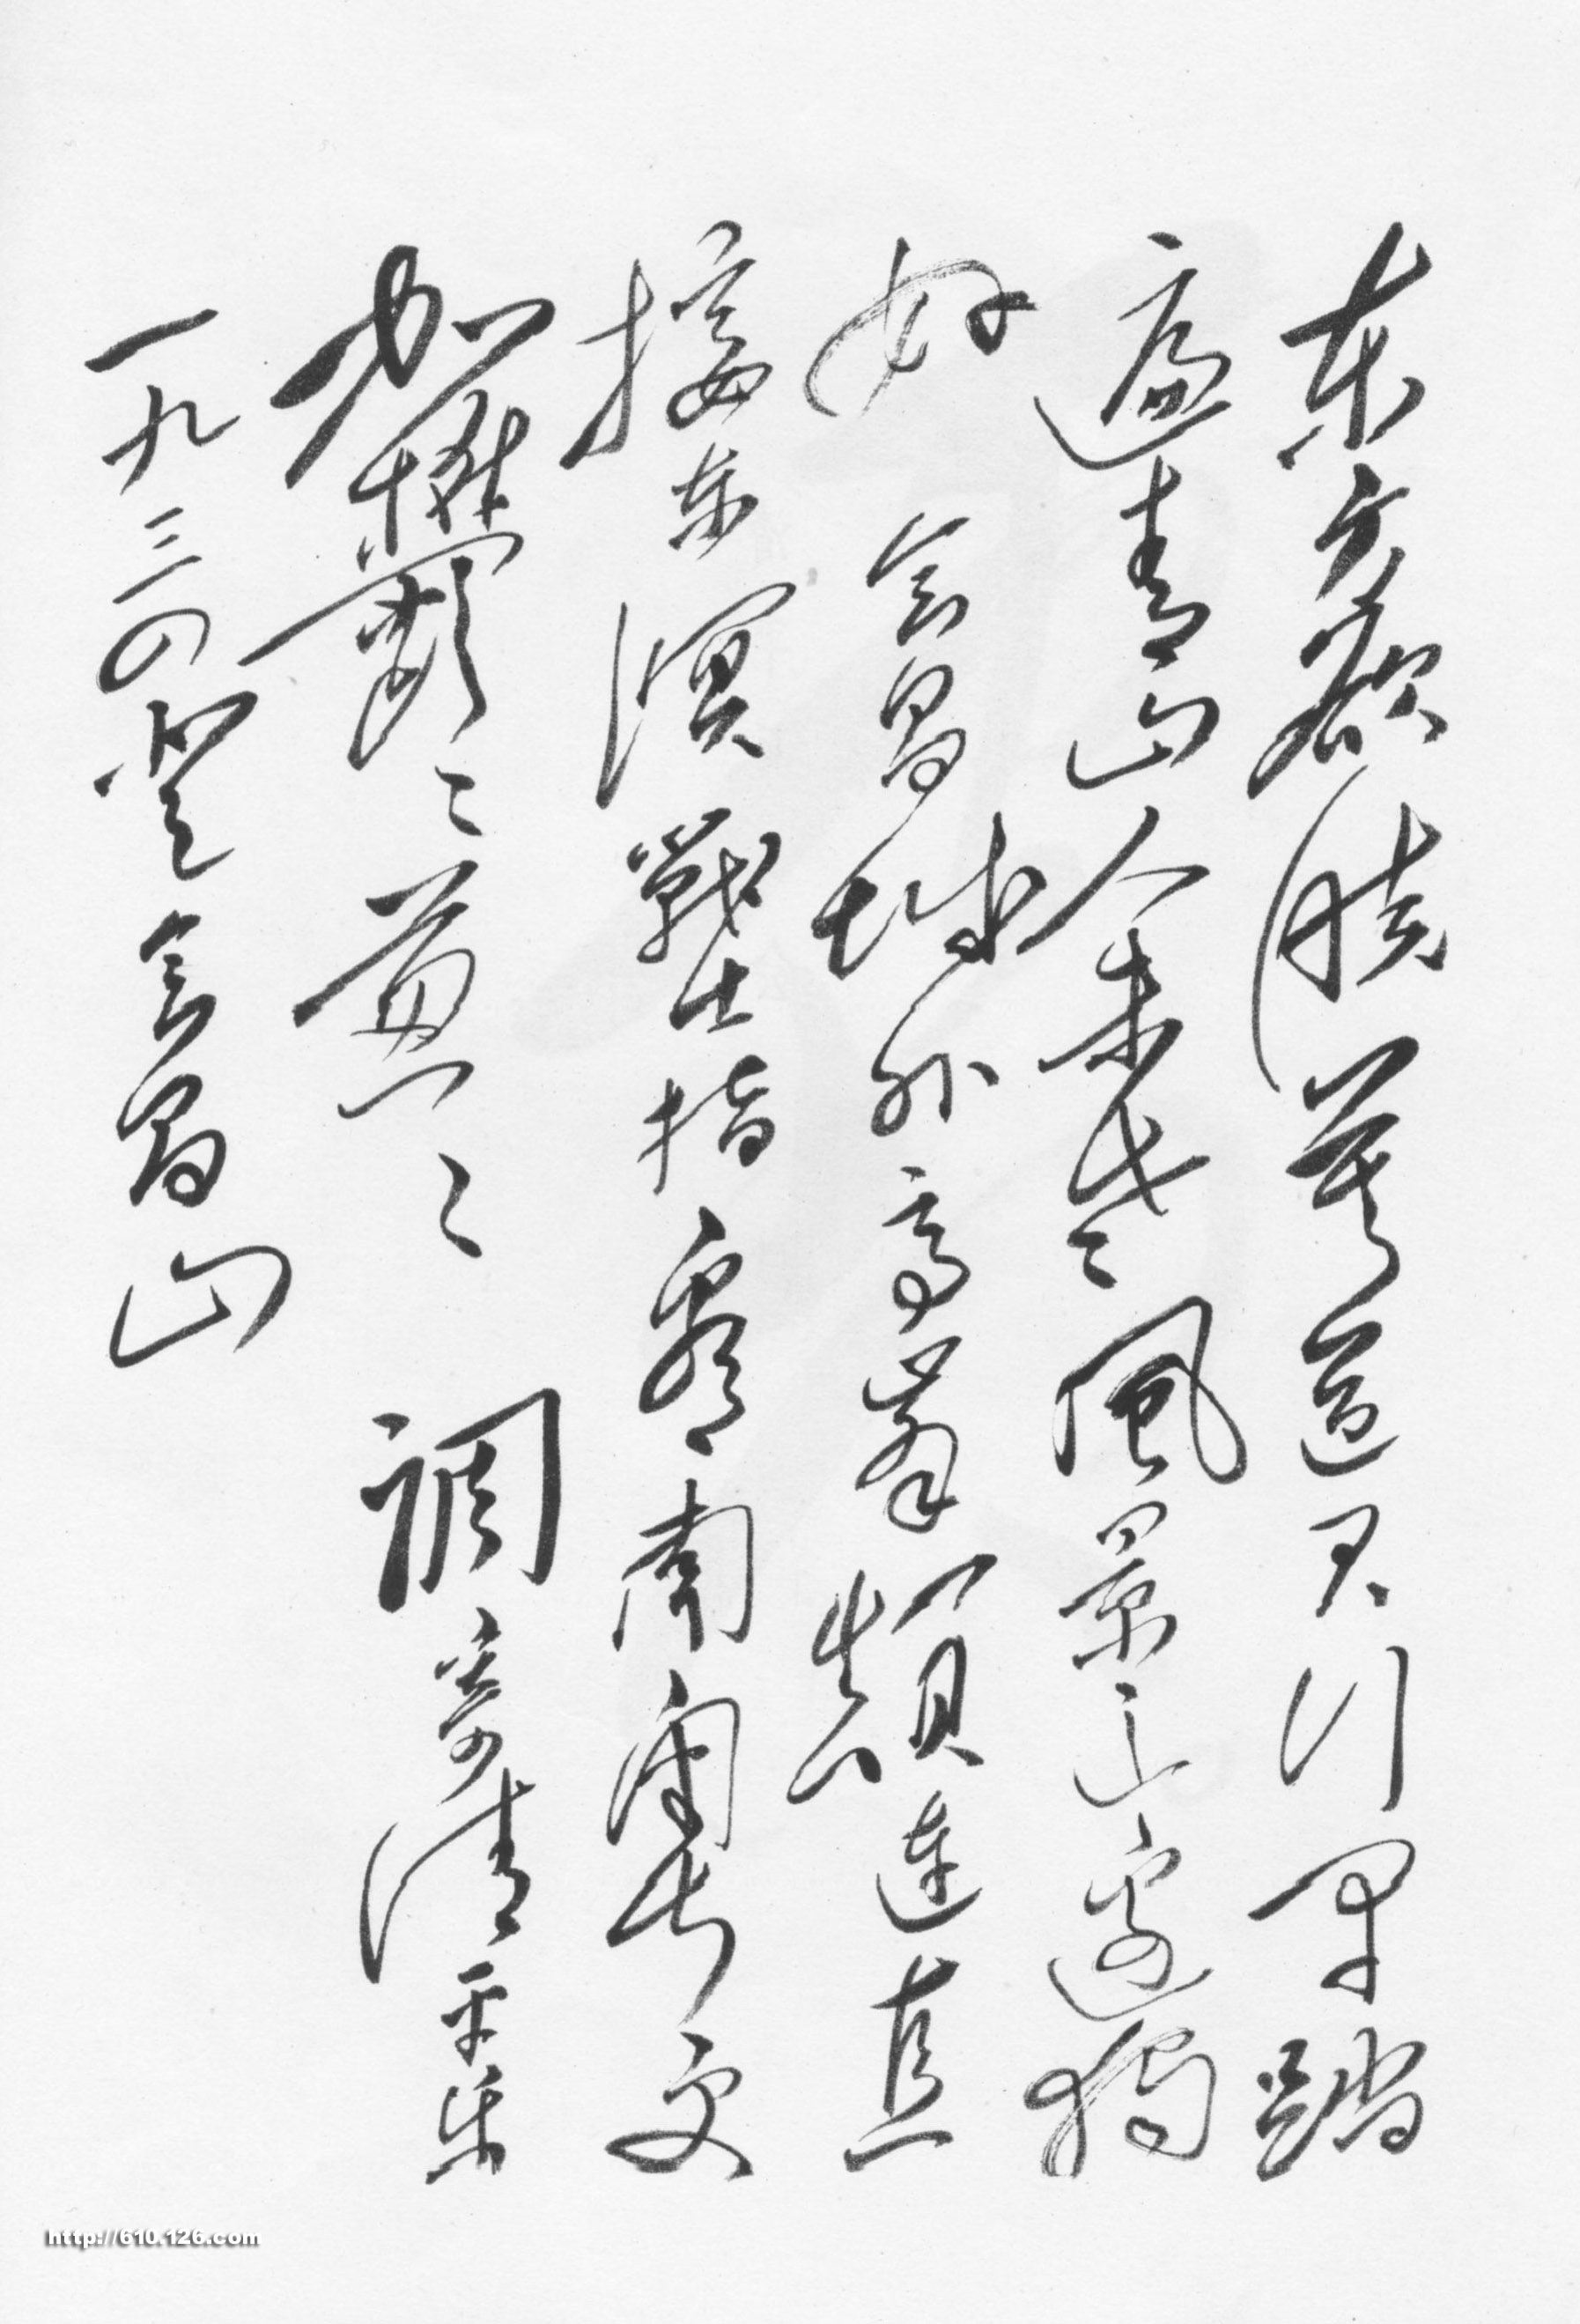 东方欲晓莫道君行早踏
遍青山人未老風景这邊獨
好 会昌城外高峯颠連直
接东溟戰士指看南粤更
加鬱々葱々 調寄清平乐
一九三四登会昌山
http://610.126.com